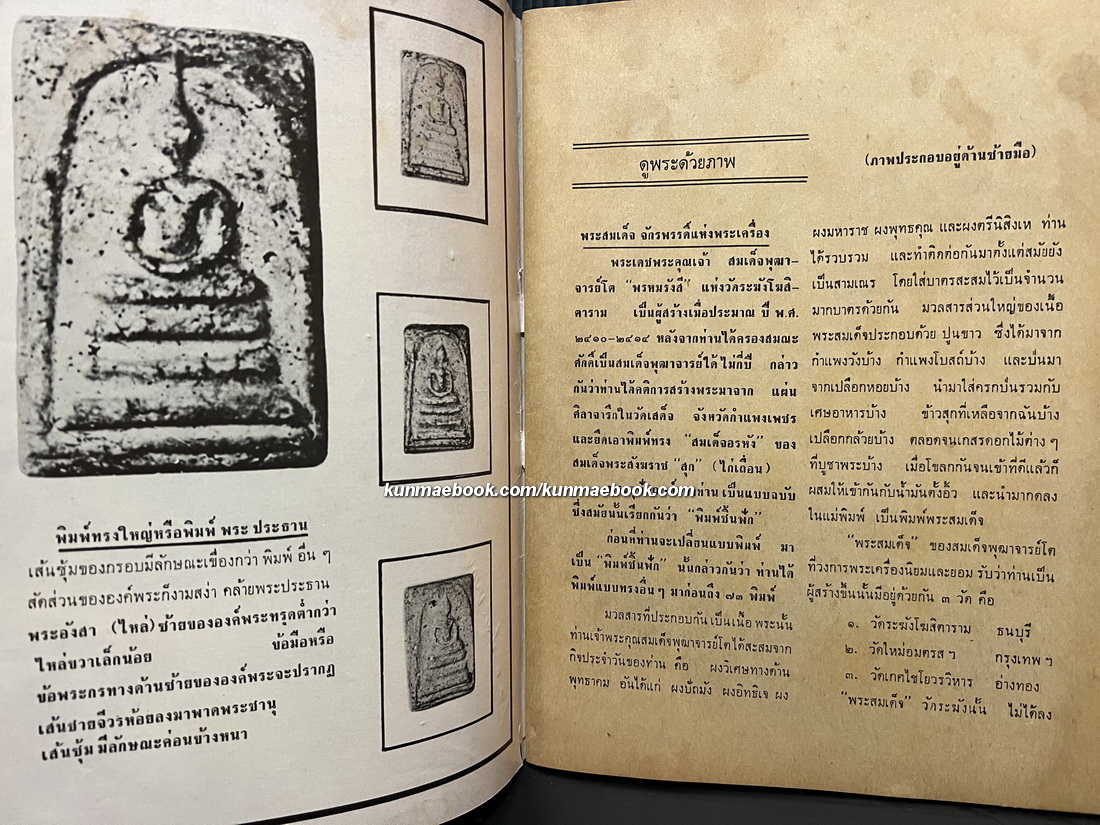 พิมพ์ทรงใหญ่หรือพิมพ์ พระ ประธาน
เส้นซุ้มของกรอบมีลักษณะเขื่องกว่า พิมพ์ อื่น ๆ
สัดส่วนขององค์พระก็งามสง่า คล้ายพระประธาน
พระอังสา (ไหล่) ซ้ายขององค์พระทรุดต่ำกว่า
ไหล่ขวาเล็กน้อย ข้อมือหรือ
ข้อพระกรทางด้านซ้ายขององค์พระจะปรากฏ
เส้นชายจีวรห้อยลงมาพาดพระชานุ
เส้นซุ้ม มีลักษณะค่อนข้างหนา
kunmaebook.com/kunmaebook.com
ดูพระด้วยภาพ
(ภาพประกอบอยู่ด้านซ้ายมือ)
พระสมเด็จ จักรพรรดิ์แห่งพระเครื่อง
พระเดชพระคุณเจ้า สมเด็จพุฒา-
จารย์โต "พรหมรังสี" แห่งวัดระฆังโฆสิ-
ตาราม เป็นผู้สร้างเมื่อประมาณ ปี พ.ศ.
๒๔๑๐-๒๔๑๔ หลังจากท่านได้ครองสมณะ
ศักดิ์เป็นสมเด็จพุฒาจารย์ได้ ไม่กี่ปี กล่าว
กันว่าท่านได้คติการสร้างพระมาจาก แผ่น
ศิลาจารึกในวัดเสด็จ จังหวัดกำแพงเพชร
และยึดเอาพิมพ์ทรง "สมเด็จอรหัง" ของ
สมเด็จพระสังฆราช "สุก" (ไก่เถื่อน)
ท่าน เป็นแบบฉบับ
ซึ่งสมัยนั้นเรียกกันว่า "พิมพ์ชิ้นฟัก"
ก่อนที่ท่านจะเปลี่ยนแบบพิมพ์ มา
เป็น "พิมพ์ชิ้นฟัก" นั้นกล่าวกันว่า ท่านได้
พิมพ์แบบทรงอื่น ๆ มาก่อนถึง ๗๓ พิมพ์
มวลสารที่ประกอบกัน เป็นเนื้อ พระนั้น
ท่านเจ้าพระคุณสมเด็จพุฒาจารย์โตได้สะสมจาก
กิจประจำวันของท่าน คือ ผงวิเศษทางด้าน
พุทธาคม อันได้แก่ ผงปัถมัง ผงอิทธิเจ ผง
ผงมหาราช ผงพุทธคุณ และผงตรีนิสิงเห ท่าน
ได้รวบรวม และทำติดต่อกันมาตั้งแต่สมัยยัง
เป็นสามเณร โดยใส่บาตรสะสมไว้เป็นจำนวน
มากบาตรด้วยกัน มวลสารส่วนใหญ่ของเนื้อ
พระสมเด็จประกอบด้วย ปูนขาว ซึ่งได้มาจาก
กำแพงวังบ้าง กำแพงโบสถ์บ้าง และป่นมา
จากเปลือกหอยบ้าง นำมาใส่ครกป่นรวมกับ
เศษอาหารบ้าง ข้าวสุกที่เหลือจากฉันบ้าง
เปลือกกล้วยบ้าง ตลอดจนเกสรดอกไม้ต่าง ๆ
ที่บูชาพระบ้าง เมื่อโขลกกันจนเข้าที่ดีแล้วก็
ผสมให้เข้ากันกับน้ำมันตั้งอิ้ว และนำมากดลง
ในแม่พิมพ์ เป็นพิมพ์พระสมเด็จ
"พระสมเด็จ" ของสมเด็จพุฒาจารย์โต
ที่วงการพระเครื่องนิยมและยอม รับว่าท่านเป็น
ผู้สร้างขึ้นนั้นมีอยู่ด้วยกัน ๓ วัด คือ
๑. วัดระฆังโฆสิตาราม ธนบุรี
๒. วัดใหม่อมตรส ฯ กรุงเทพ ฯ
๓. วัดเกศไชโยวรวิหาร อ่างทอง
"พระสมเด็จ" วัดระฆังนั้น ไม่ได้ลง